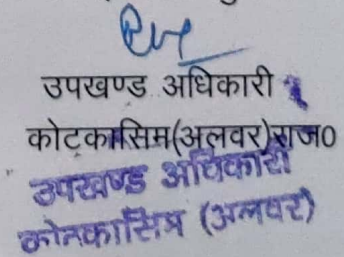 उपखण्ड अधिकारी
कोटकासिम(अलवर)राज0
उपखण्ड अधिकारी
कोटकासिम (अलवर)